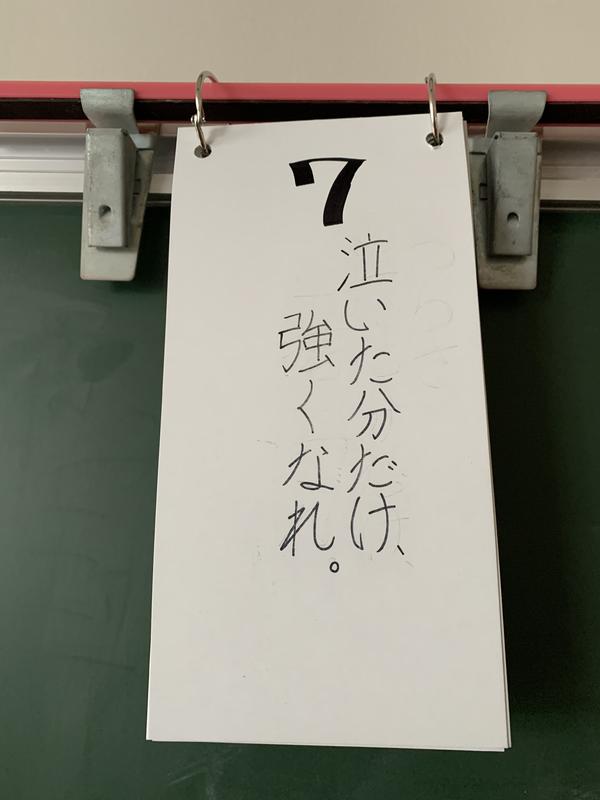 7
泣いた分だけ、
強くなれ。